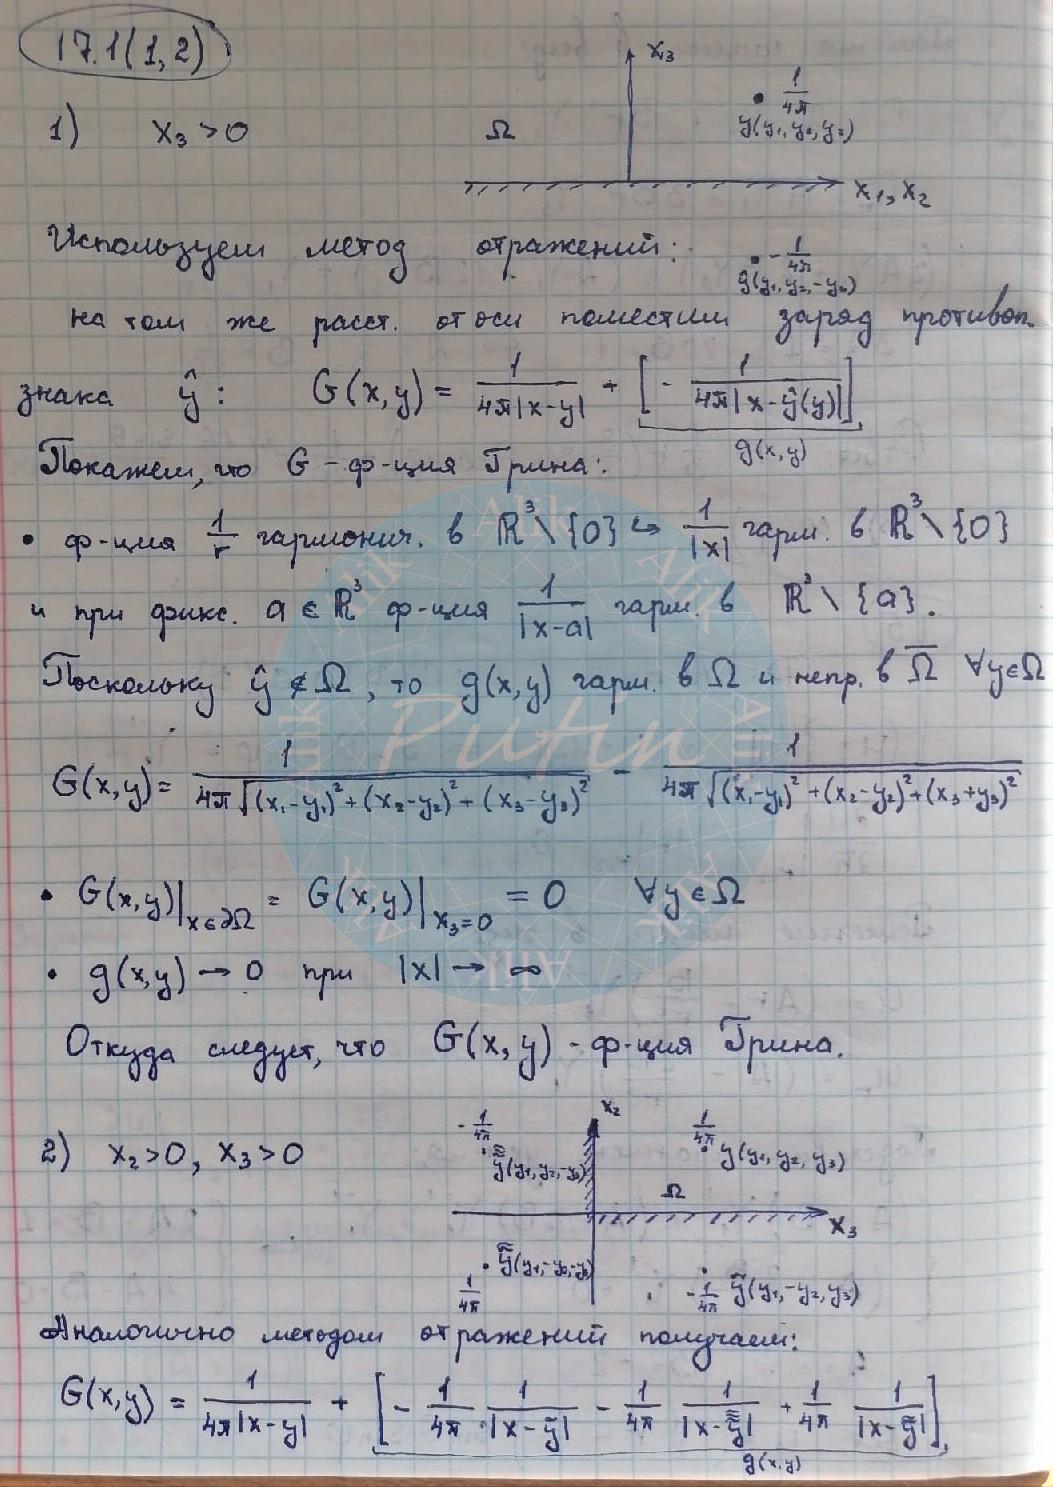 17.1(1,2)
1) x₃ > 0
Ω
x₃
1/4π
y(y₁,y₂,y₃)
x₁, x₂
Используем метод отражений:
-1/4π
ŷ(y₁,y₂,-y₃)
на том же расст. от оси поместим заряд противоп.
знака ŷ: G(x,y) = 1/(4π|x-y|) + [- 1/(4π|x-ŷ(y)|)]
g(x,y)
Покажем, что G - ф-ция Грина:
• ф-ция 1/r гармонич. в ℝ³\{0} ↪ 1/|x| гарм. в ℝ³\{0}
и при фикс. a ∈ ℝ³ ф-ция 1/|x-a| гарм. в ℝ³\{a}.
Поскольку ŷ ∉ Ω, то g(x,y) гарм. в Ω и непр. в Ω̅ ∀y∈Ω
G(x,y) = 1/(4π√((x₁-y₁)²+(x₂-y₂)²+(x₃-y₃)²)) - 1/(4π√((x₁-y₁)²+(x₂-y₂)²+(x₃+y₃)²))
• G(x,y)|x∈∂Ω = G(x,y)|x₃=0 = 0 ∀y∈Ω
• g(x,y) → 0 при |x| → ∞
Откуда следует, что G(x,y) - ф-ция Грина.
2) x₂>0, x₃>0
x₂
-1/4π
ỹ̃̃(y₁,y₂,-y₃)
1/4π
y(y₁,y₂,y₃)
Ω
x₃
ỹ̃(y₁,-y₂,-y₃)
1/4π
-1/4π ỹ(y₁,-y₂,y₃)
Аналогично методом отражений получаем:
G(x,y) = 1/(4π|x-y|) + [- 1/4π · 1/|x-ỹ| - 1/4π 1/|x-ỹ̃̃| + 1/4π 1/|x-ỹ̃|]
g(x,y)
Putin
Alik
Alik
Alik
Alik
Alik
Alik
Alik
Alik